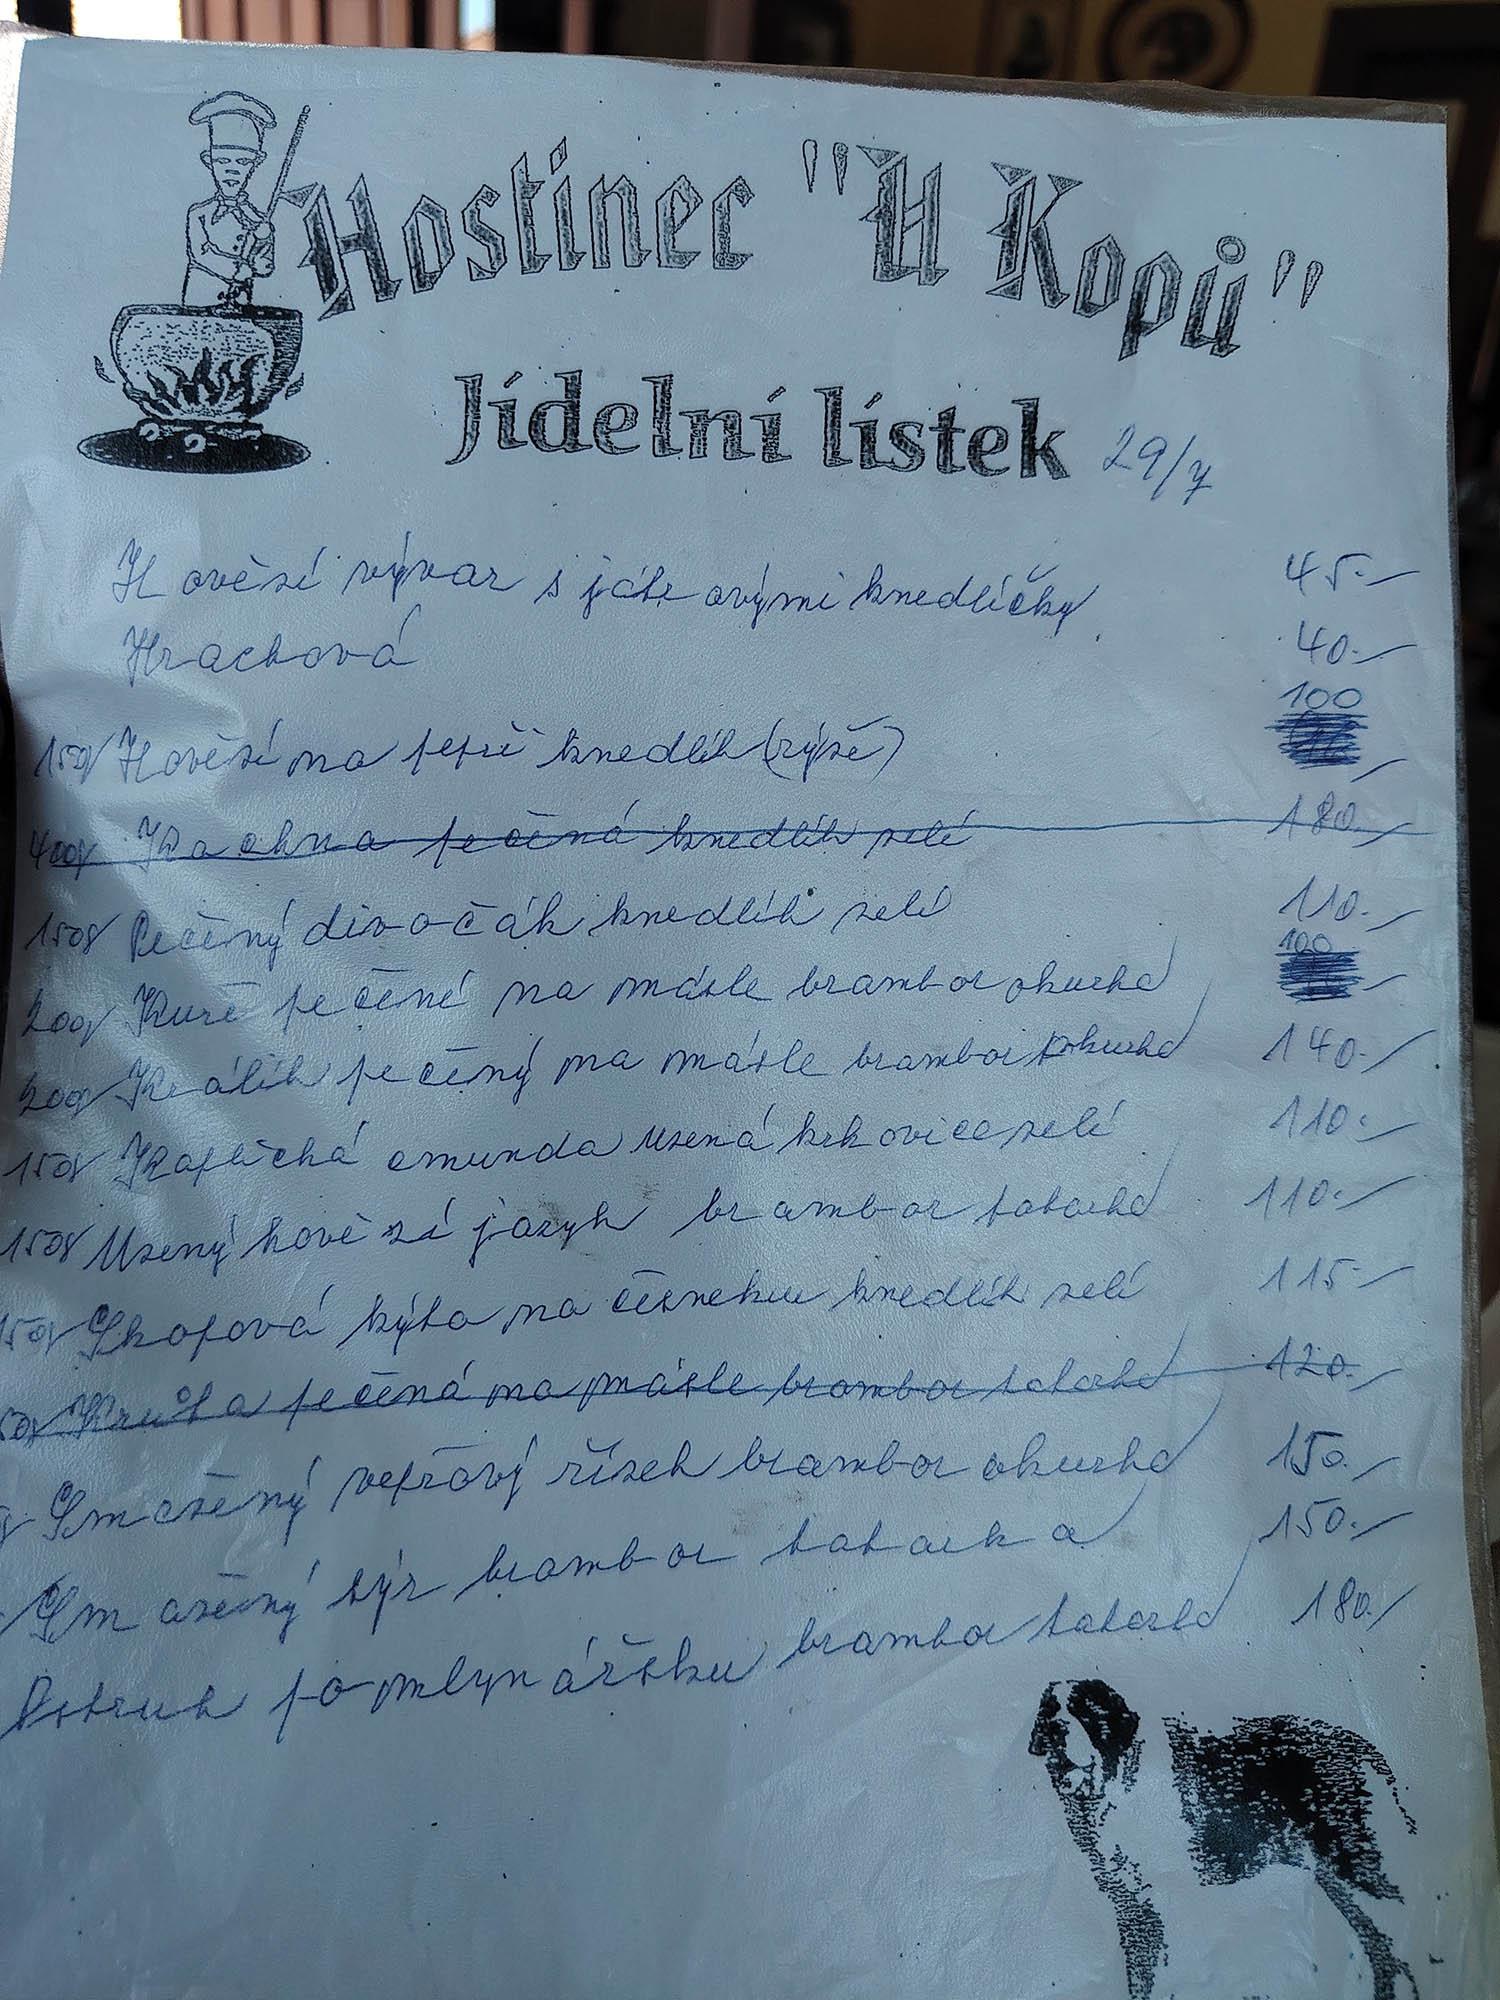 Hostinec "U Kopů"
Jídelní lístek 29/7
Hovězí vývar s játrovými knedlíčky 45.-
Hrachová 40.-
150g Hovězí na pepři knedlík (rýže) 100
400g Kachna pečená knedlík zelí 180.-
150g Pečený divočák knedlík zelí 110.-
200g Kuře pečené na másle brambor okurka 100
200g Králík pečený na másle brambor okurka 140.-
150g Kaplická omunda uzená krkovice zelí 110.-
150g Uzený hovězí jazyk brambor tatarka 110.-
150g Skopová kýta na česneku knedlík zelí 115.-
50g Krůta pečená na másle brambor tatarka 120.-
g Smažený vepřový řízek brambor okurka 150.-
Smažený sýr brambor tatarka 150.-
Pstruh po mlynářsku brambor tatarka 180.-